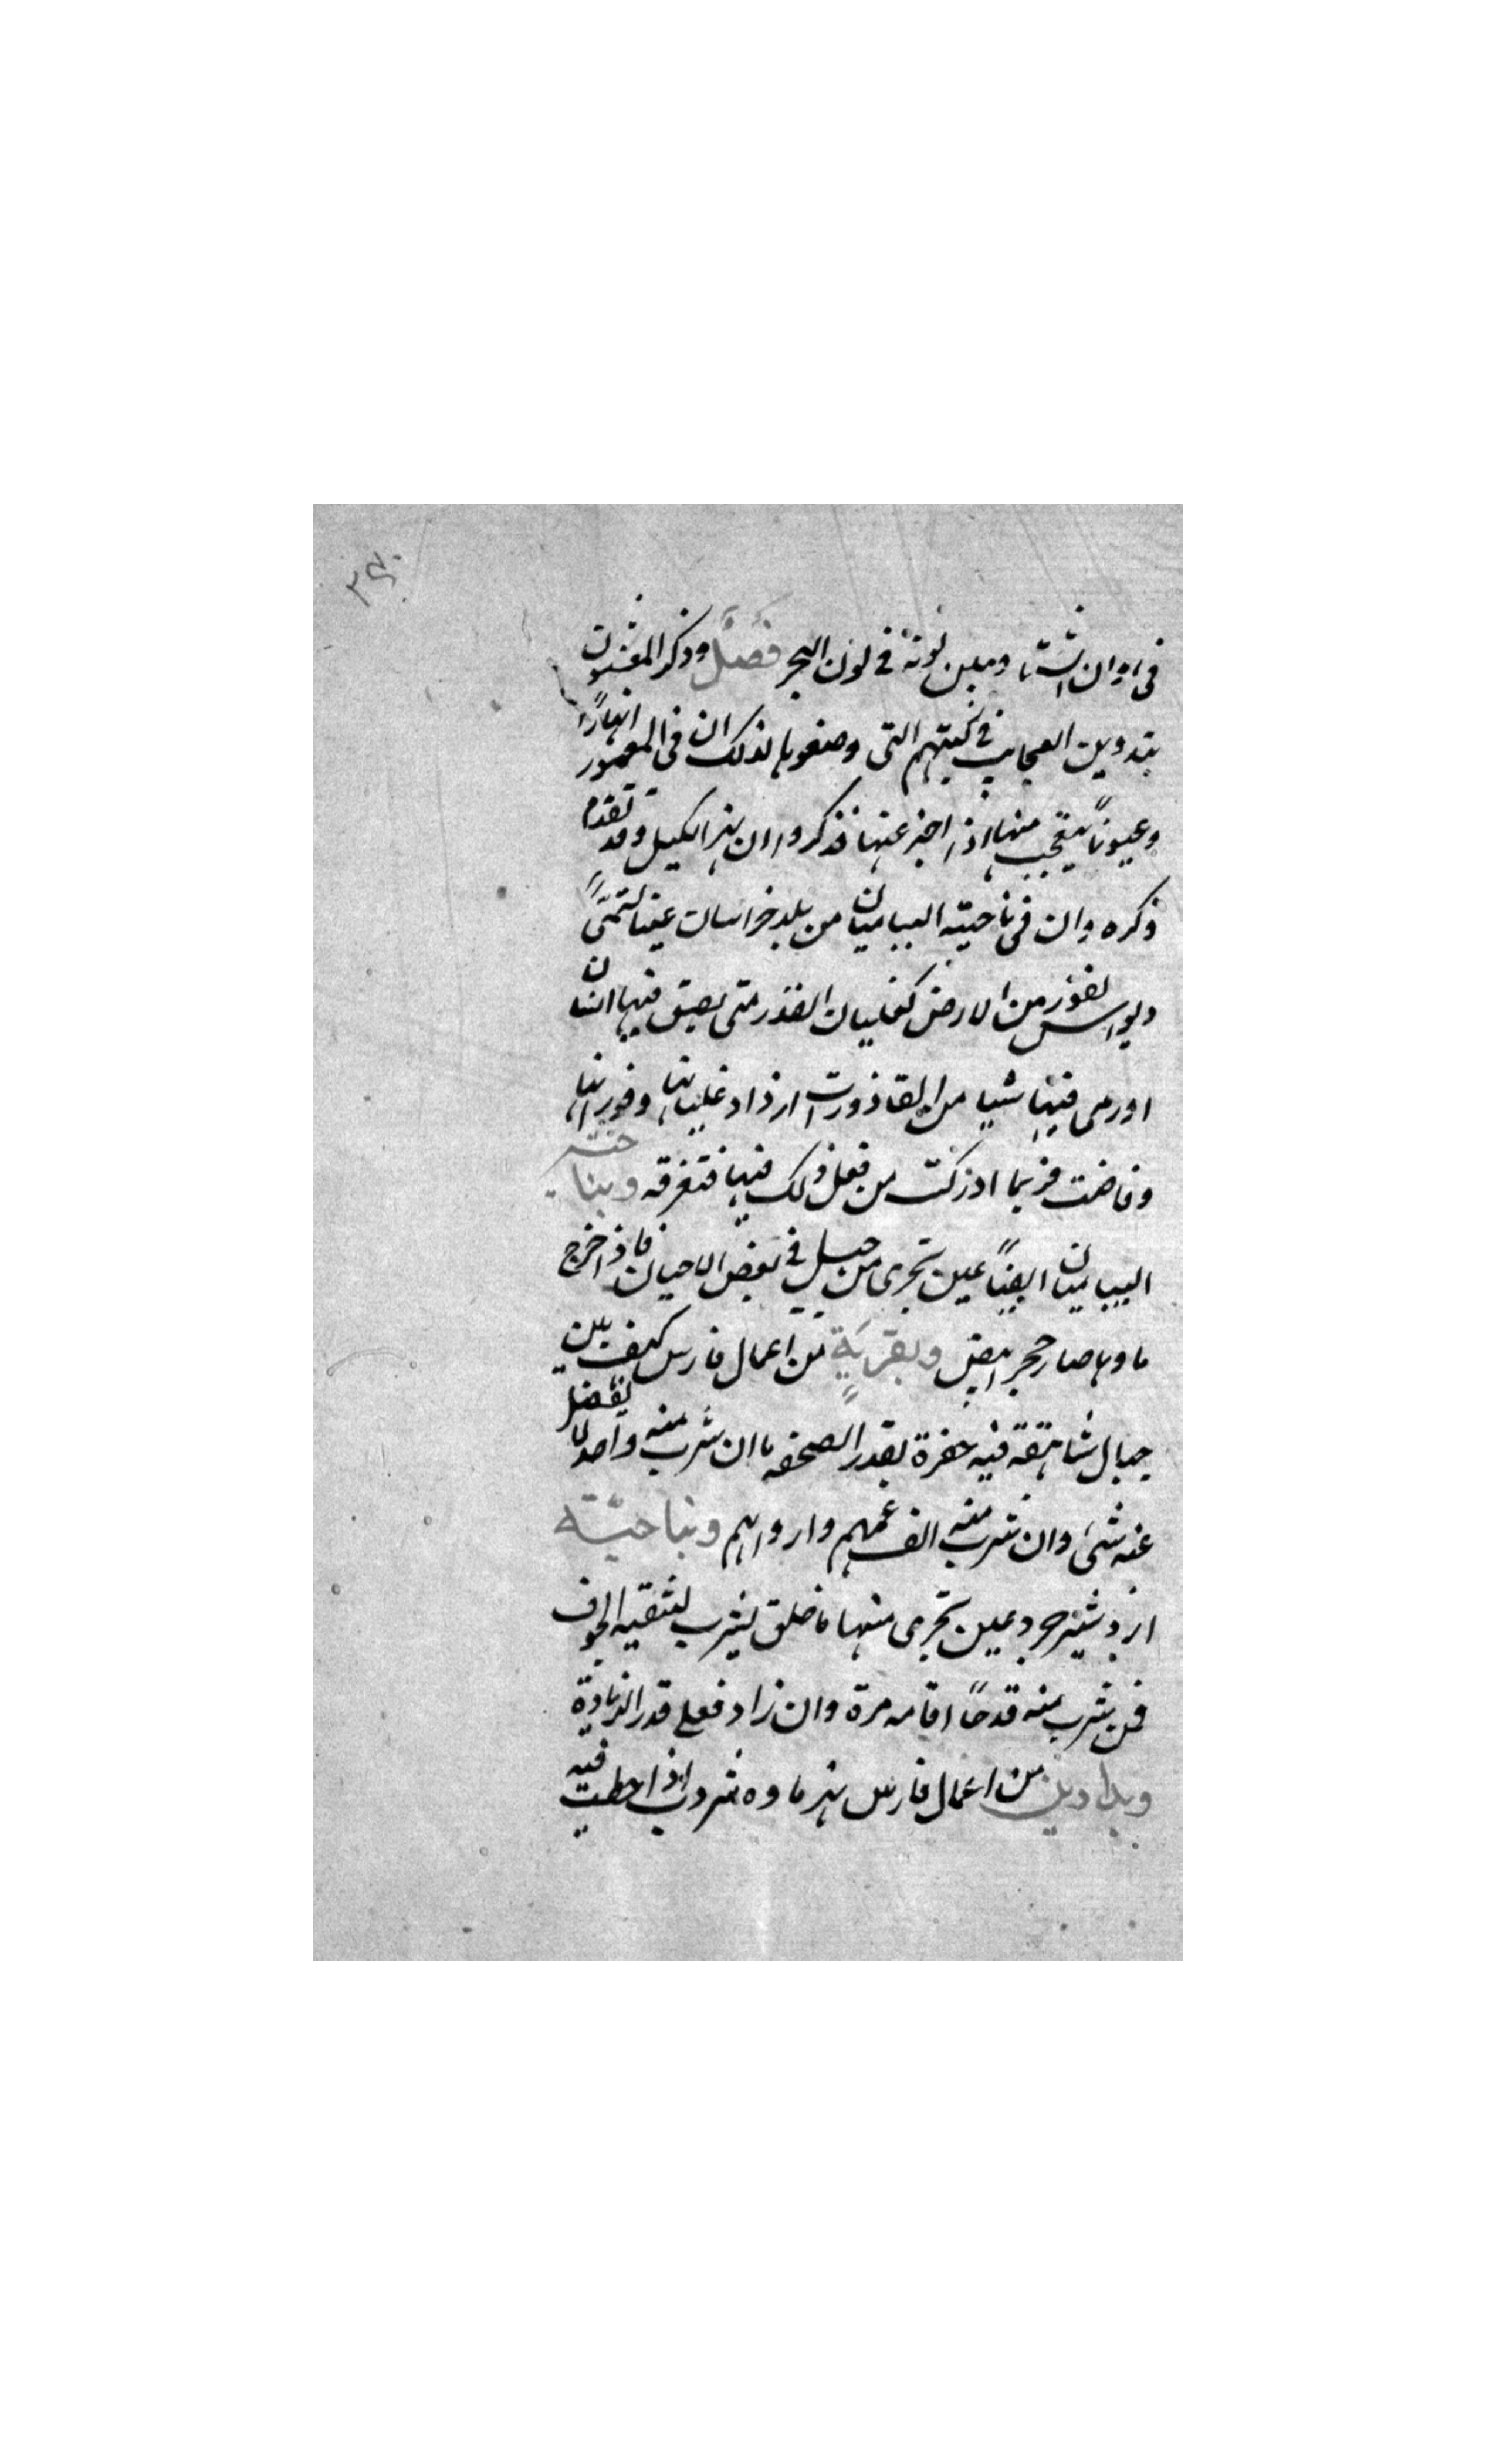 في اوان الشتا ويبين لونه في لون البحر فصل وذكر المعتنون
بتدوين العجايب في كتبهم التي وضعوها لذلك ان في المعمور انهارًا
وعيونًا يتعجب منها اذا اخبر عنها فذكروا ان نهر الكيل وقد تقدم
ذكره وان في ناحية الباميان من بلد خراسان عينا تسمى
ديواس تفور من الارض كغليان القدر متى بصق فيها انسان
او رمى فيها شيا من القاذورات ازداد غليانها وفورانها
وفاضت فربما ادركت من فعل ذلك فيها فتغرقه وبناحية
الباميان ايضًا عين تجرى من جبل في بعض الاحيان فاذا خرج
ماوها صار حجر ابيض وبقرية من اعمال فارس كهف بين
جبال شاهقة فيه حفرة بقدر الصحفه ما ان شرب منه واحد لا يفضل
عنه شئ وان شرب منه الف عمهم وارواهم وبناحية
ازدشيرجرد عين تجرى منها ما حلو يشرب لتنقيه الجوف
فمن شرب منه قدحًا اقامه مرة وان زاد فعلى قدر الزيادة
وبدادين من اعمال فارس نهر ماوه شروب اذا حطت فيه